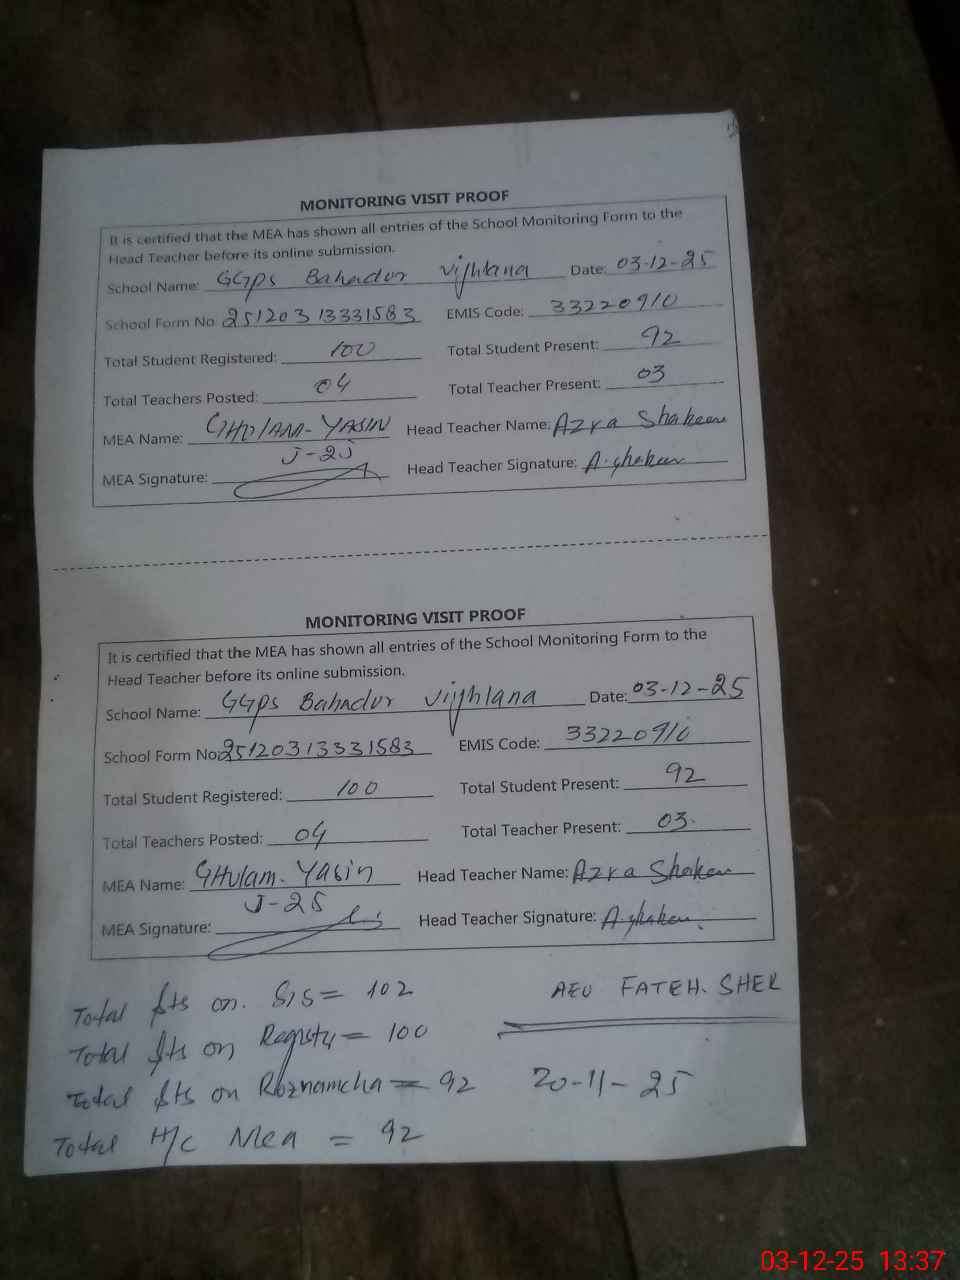 MONITORING VISIT PROOF
It is certified that the MEA has shown all entries of the School Monitoring Form to the
Head Teacher before its online submission.
School Name: GGPS Bahadur Vijhlana Date: 03-12-25
School Form No 25120313331583 EMIS Code: 33220910
Total Student Registered: 100 Total Student Present: 92
Total Teachers Posted: 04 Total Teacher Present: 03
MEA Name: GHULAM-YASIN Head Teacher Name: Azra Shaheen
J-25
MEA Signature: Head Teacher Signature: A.shaheen
MONITORING VISIT PROOF
It is certified that the MEA has shown all entries of the School Monitoring Form to the
Head Teacher before its online submission.
School Name: GGPS Bahadur Vijhlana Date: 03-12-25
School Form No: 25120313331583 EMIS Code: 33220910
Total Student Registered: 100 Total Student Present: 92
Total Teachers Posted: 04 Total Teacher Present: 03
MEA Name: GHulam-Yasin Head Teacher Name: Azra Shaheen
J-25
MEA Signature: Head Teacher Signature: A.shaheen
Total Sts on. SIS = 102 AEO FATEH. SHER
Total Sts on = 100
Total Sts on Roznamcha = 92 20-11-25
Total H/C Mea = 92
03-12-25 13:37